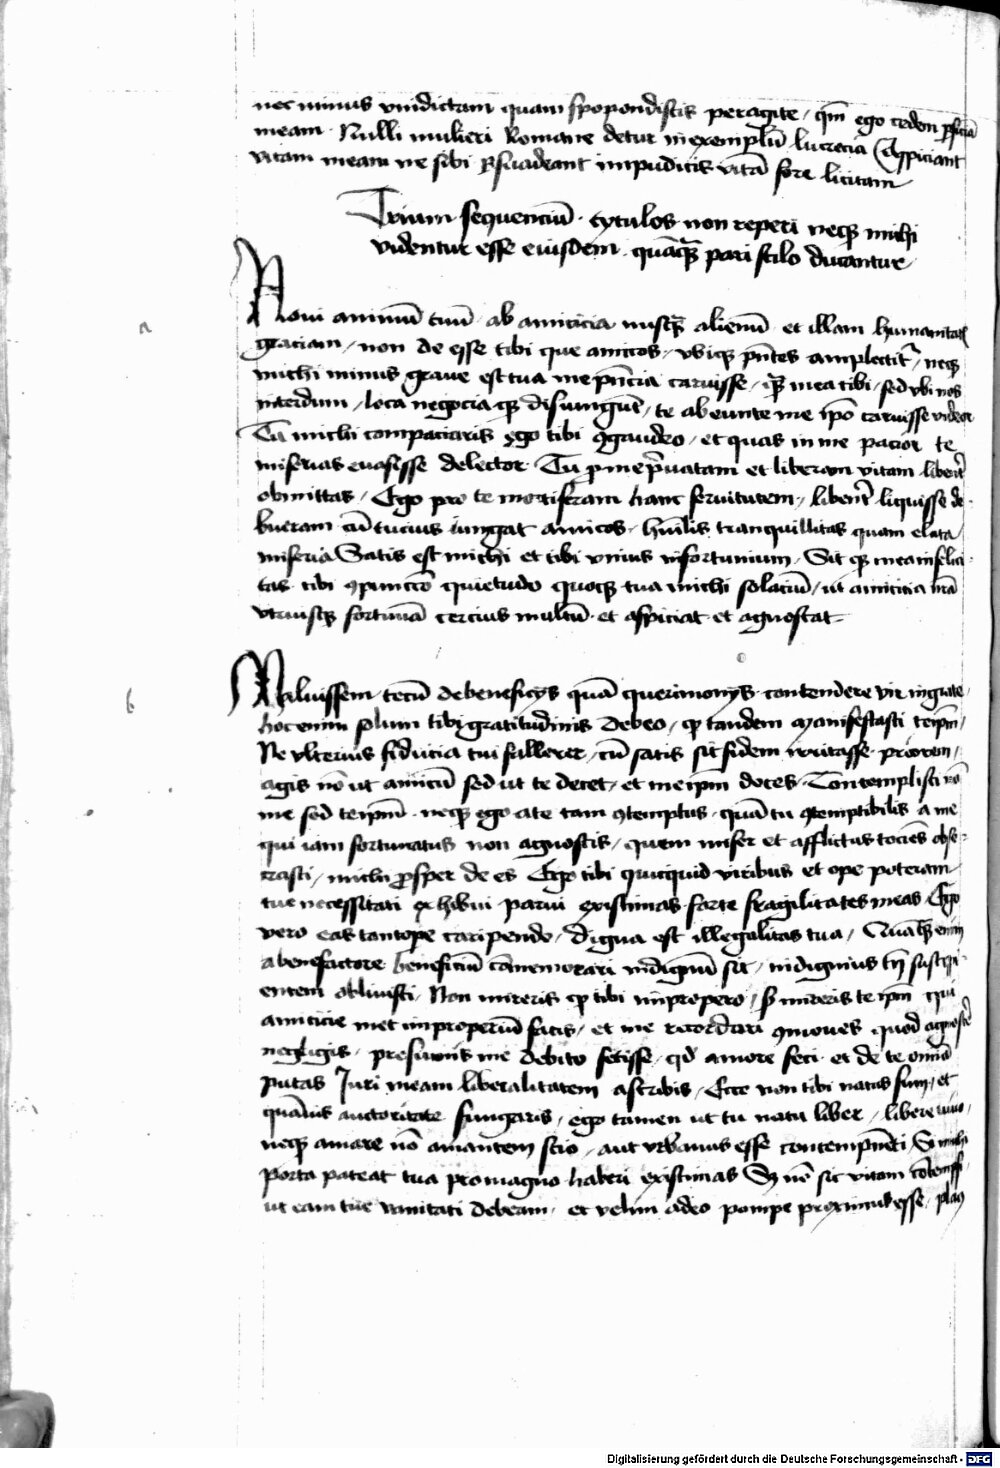 nec minus vindictam quam spopondistis peragite / qm̄ ego cedem
meam · Nulli mulieri Romane detur in exemplū lucrecia Aspiciant
vitam meam ne sibi psuadeant impudicis vitā fore licitam
Trium sequenciū · tytulos non reperi neq; michi
videntur esse eiusdem · quāq̄ pari stilo dicantur
a
Noui animū tuū · ab amicicia nusq̄ alienū · et illam
graciam / non de esse tibi que amicos / vbiq; pn̄tes amplectit̄ / neq;
michi minus graue est tua me pn̄cia caruisse / q̄ mea tibi / sed vbi nos
interdum / loca negocia q; disiungūt / te abeunte me ip̄o caruisse videor
Tū michi compaciaris ego tibi ɔgaudeo / et quas in me pacior te
miserias euasisse delector · Tu p me p̄uatam et liberam vitam
obmittas / Ego pro te mortiferam hanc seruitutem / libent̄ liquisse de
bueram cū tucius iungat amicos / hūilis tranquillitas quam elata
miseria Satis est michi et tibi vnius infortunium / Sit q; mea infelici
tas tibi ɔpunctō quietudo quoq; tua michi solaciū / ut amicicia nr̄a
vtriusq; fortunā tercius multū · et aspiciat et agnoscat
b
Maluissem tecū de beneficijs quā querimonijs contendere vir ingrate
hoc enim solum tibi gratitudinis debeo / q̄ tandem manifestasti teip̄m /
Ne vlterius fiducia tui fallerer / cū satis sit fidem
agis nō ut amicū sed ut te decet / et meip̄m doces · Contempsisti nō
me sed teip̄m · neq; ego a te tam ɔtemptus · quā tu ɔtemptibilis a me
qui iam fortunatus non agnoscis / quem miser et afflictus tociēs obse
crasti / michi prosper de es Ego tibi quicquid viribus et ope poteram
tue necessitati exhibui parui existimas forte fragilitates meas Ego
vero eas tantope caripendo / digna est illegalitas tua / enim
a benefactore beneficiū cōmemorari indignū sit / indignius tn̄ suscipi
entem obliuisci · Non mireris q̄ tibi impropero / s; mireris teip̄m qui
amicicie met improperiū facis / et me recordari ɔmoues quod
negligis / me debito fecisse / qd̄ amore feci et de te omīa
putas Juri meam liberalitatem ascribis / Ecce non tibi natus sum / et
quāuis auctoritate fungaris / ego tamen ut tu natu liber / libere viuo /
neq; amare nō amantem scio / aut vrbanus esse contempnēti / Si michi
porta pateat tua pro magno haberi existimas S; nō sic vitam
ut eam tue vanitati debeam / et velim adeo pompe proximus esse /
Digitalisierung gefördert durch die Deutsche Forschungsgemeinschaft - DFG